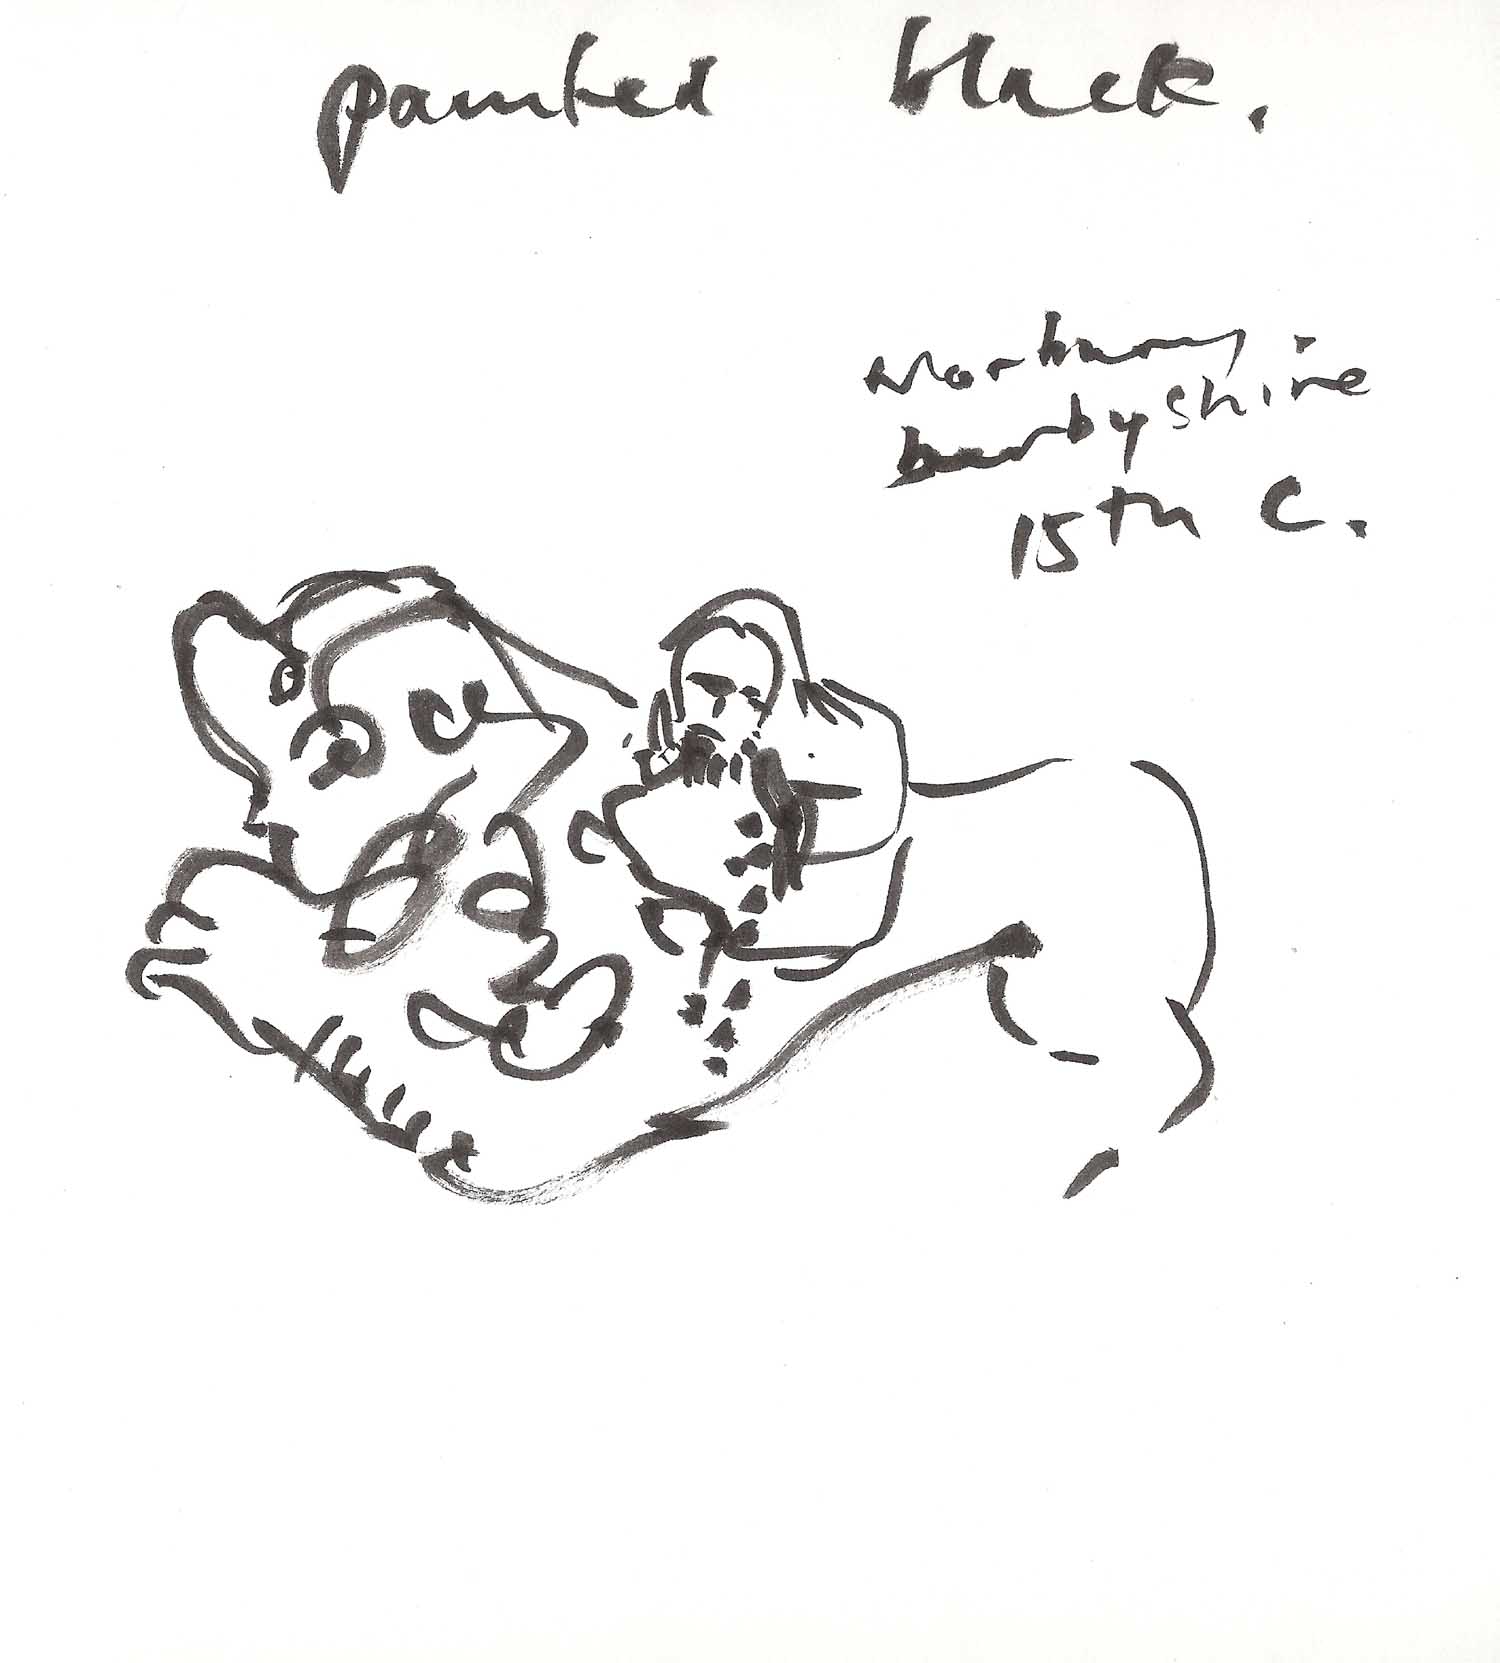 painted black.
Norbury.
Derbyshire
15th C.